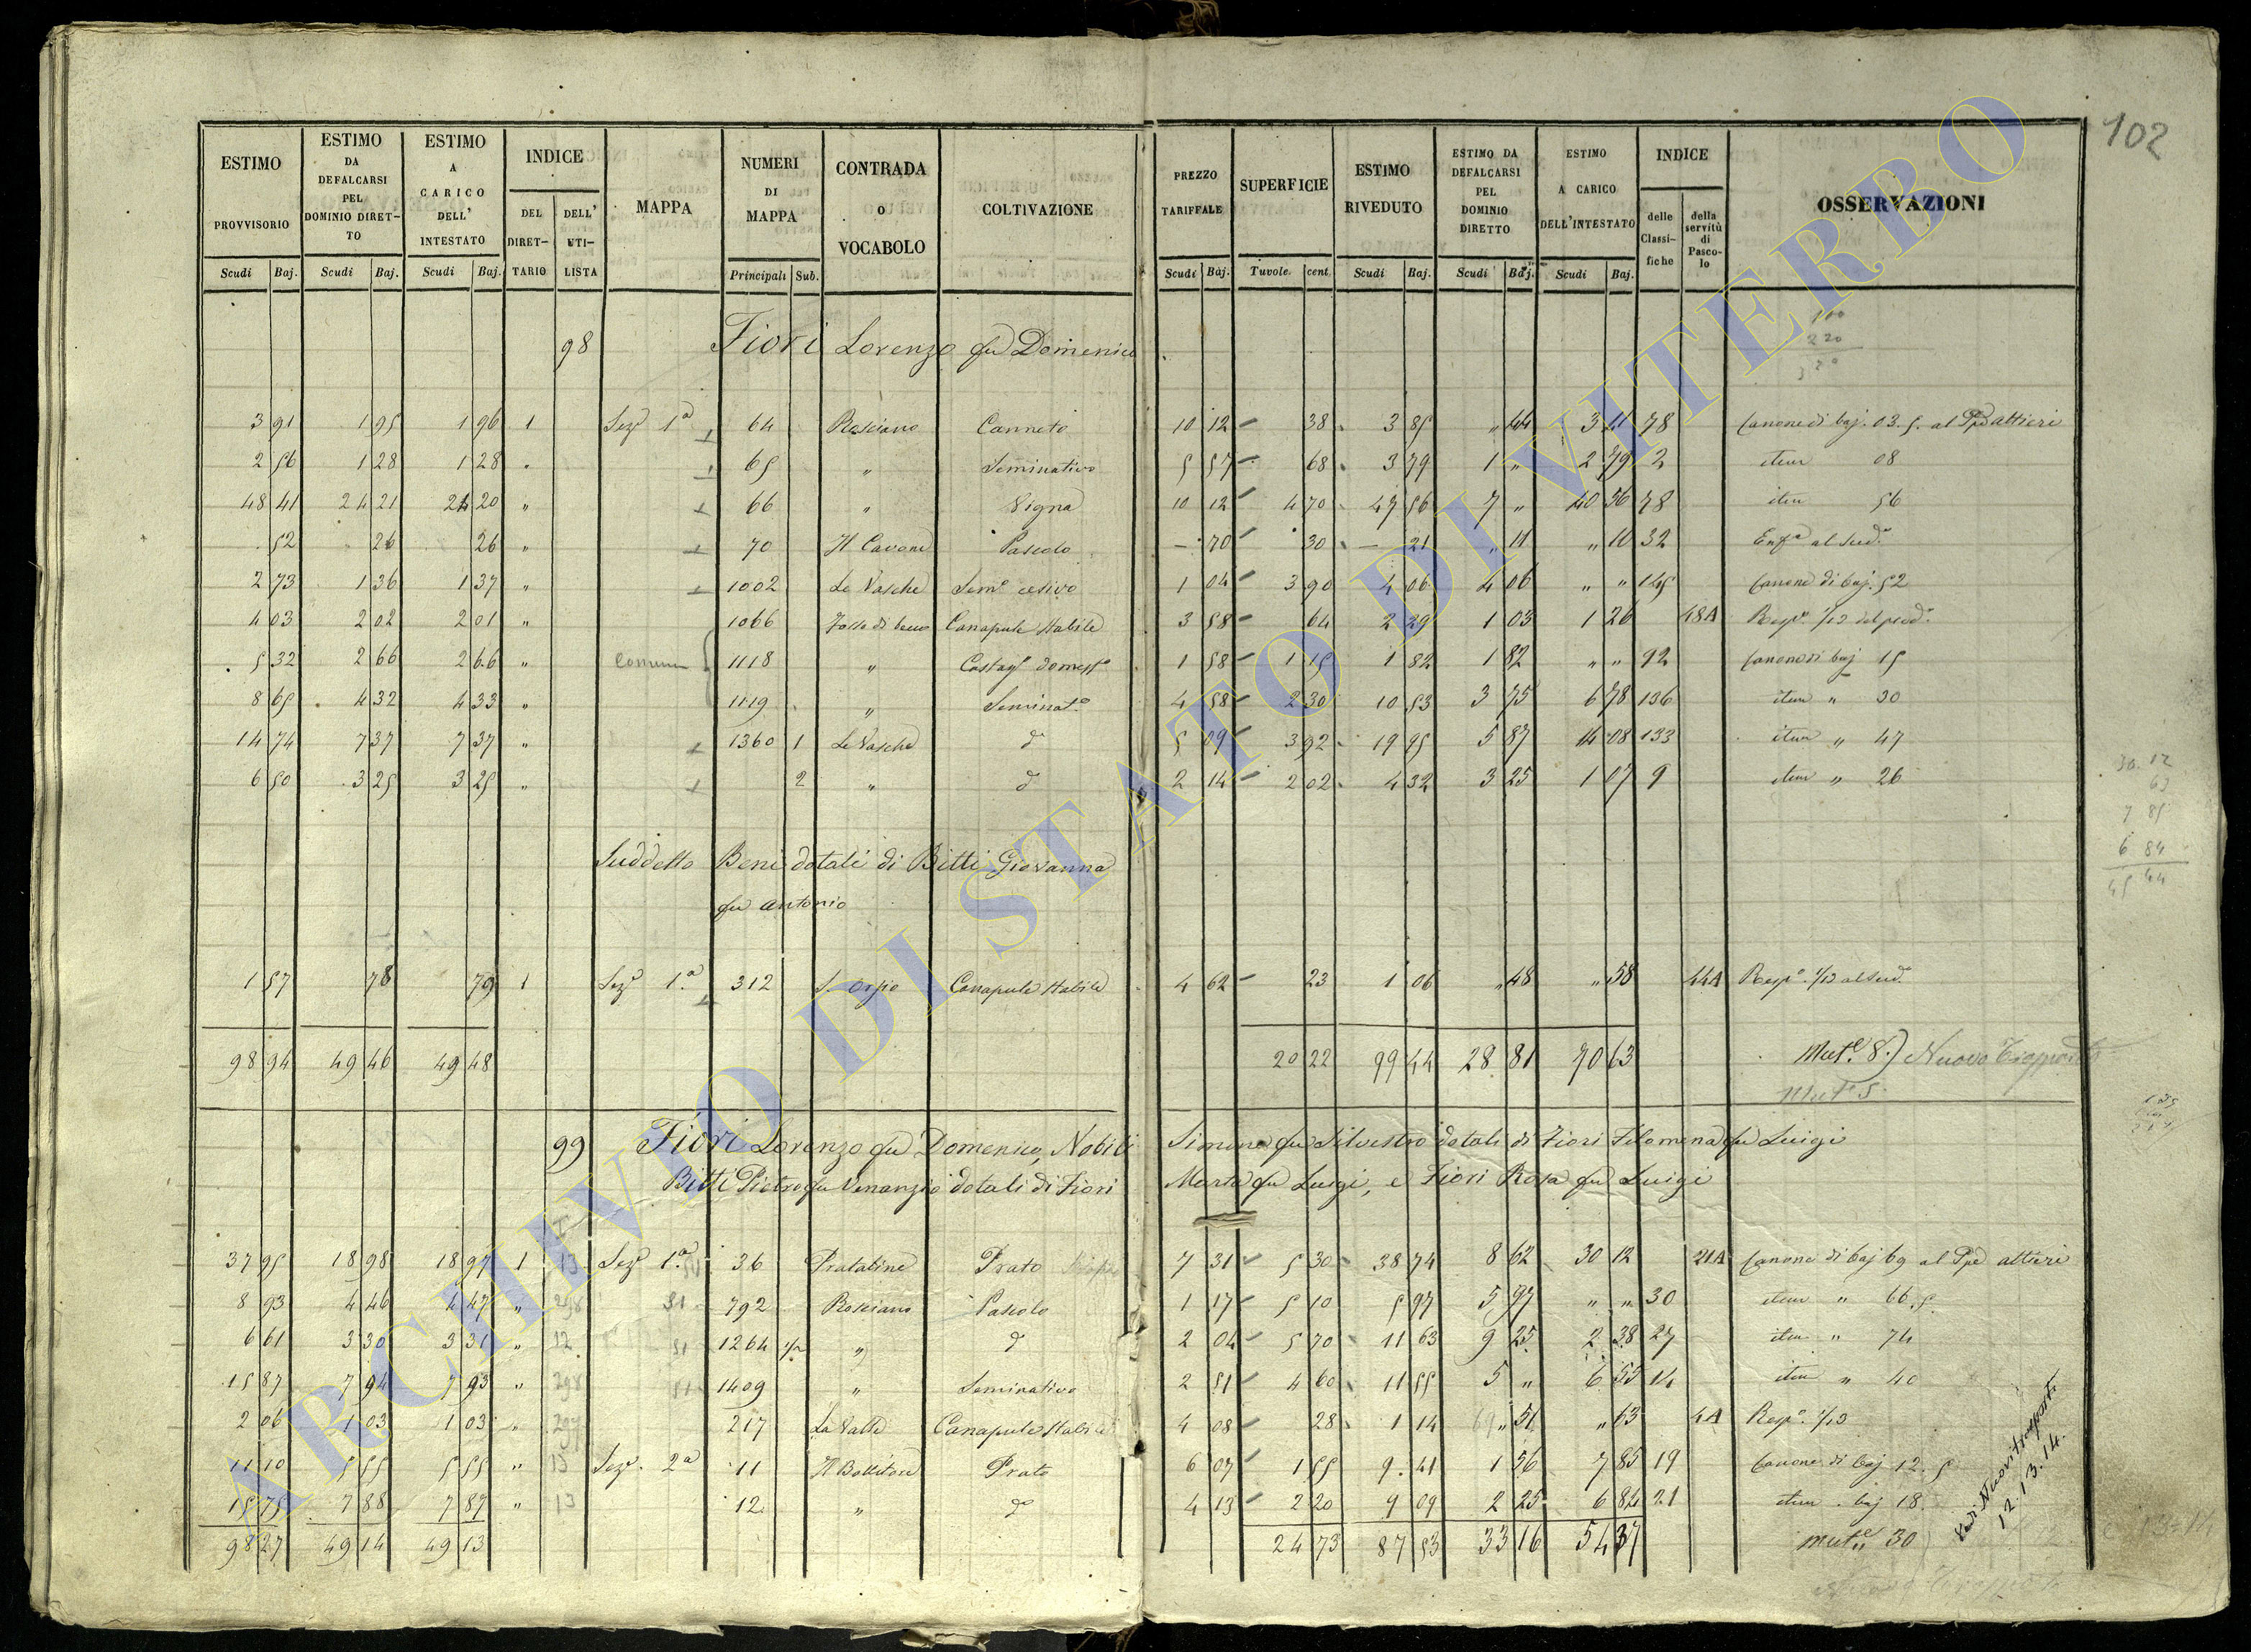 102
ESTIMO PROVVISORIO Scudi Baj. | ESTIMO DA DEFALCARSI PEL DOMINIO DIRETTO Scudi Baj. | ESTIMO A CARICO DELL' INTESTATO Scudi Baj. | INDICE DEL DIRETTARIO | DELL' UTILISTA | MAPPA | NUMERI DI MAPPA Principali Sub. | CONTRADA O VOCABOLO | COLTIVAZIONE | PREZZO TARIFFALE Scudi Baj. | SUPERFICIE Tavole cent. | ESTIMO RIVEDUTO Scudi Baj. | ESTIMO DA DEFALCARSI PEL DOMINIO DIRETTO Scudi Baj. | ESTIMO A CARICO DELL'INTESTATO Scudi Baj. | INDICE delle Classifiche | della servitù di Pascolo | OSSERVAZIONI
98 Fiori Lorenzo fu Domenico
3 91 1 95 1 96 1 Seze 1a 64 Rosciano Canneto 10 12 38 3 85 " 44 3 41 78 Canone di baj. 03.5. al Ppe Altieri
2 56 1 28 1 28 " 65 " Seminativo 5 57 68 3 79 1 " 2 79 2 item 08
48 41 24 21 24 20 " 66 " Vigna 10 12 4 70 47 56 7 " 40 56 78 item 56
52 26 26 " 70 Il Cavone Pascolo 70 30 21 " 11 " 10 32 Enfa al sudo
2 73 1 36 1 37 " 1002 Le Vasche Semo cesivo 1 04 3 90 4 06 4 06 " " 145 Canone di baj. 52
4 03 2 02 2 01 " 1066 Canapule stabile 3 58 64 2 29 1 03 1 26 48A Rispa 1/12 del prodo
5 32 2 66 2 66 " Comune 1118 " Castago domesto 1 58 1 15 1 82 1 82 " " 92 Canone di baj 15
8 65 4 32 4 33 " 1119 " Seminato 4 58 2 30 10 53 3 75 6 78 136 item " 30
14 74 7 37 7 37 " 1360 1 Le Vasche do 5 09 3 92 19 95 5 87 14 08 133 item " 47
6 50 3 25 3 25 " 2 " do 2 14 2 02 4 32 3 25 1 07 9 item " 26
30. 12
63
7 85
6 84
45 44
Suddetto Beni dotali di Bitti Giovanna
fu Antonio
1 57 78 79 1 Seze 1.a 312 Canapule stabile 4 62 23 1 06 " 48 " 58 44A Rispa 1/12 al sudo
98 94 49 46 49 48 20 22 99 44 28 81 70 63 Mute 8.) Nuovo Trapporto
Mute 5.
99 Fiori Lorenzo fu Domenico, Nobili Simone fu Silvestro dotali di Fiori Filomena fu Luigi
Bitti Pietro fu Venanzio dotali di Fiori Marta fu Luigi, e Fiori Rosa fu Luigi
37 95 18 98 18 97 1 13 Sezo 1.a 36 Pratabine Prato 7 31 5 30 38 74 8 62 30 12 21A Canone di baj 69 al Ppe Altieri
8 93 4 46 4 47 " 298 51 792 Rosciano Pascolo 1 17 5 10 5 97 5 97 " " 30 item " 66.5.
6 61 3 30 3 31 " 12 51 1264 " do 2 04 5 70 11 63 9 25 2 38 27 item " 74
15 87 7 94 7 93 " 298 51 1409 " Seminativo 2 51 4 60 11 55 5 " 6 55 14 item " 40
2 06 1 03 1 03 " 217 La Valle Canapule stabile 4 08 28 1 14 " 51 " 63 4A Rispa 1/12
11 10 5 55 5 55 " 13 Sezo. 2a 11 Prato 6 07 1 55 9. 41 1 56 7 85 19 Canone di baj 12. 5
15 75 7 88 7 87 " 13 12 " do 4 13 2 20 9 09 2 25 6 84 21 item . baj 18.
98 27 49 14 49 13 24 73 87 53 33 16 54 37 Mute 30
Vedi Nuovi trapporti
12. 13. 14.
Nuovo Trapporto
ARCHIVIO DI STATO DI VITERBO